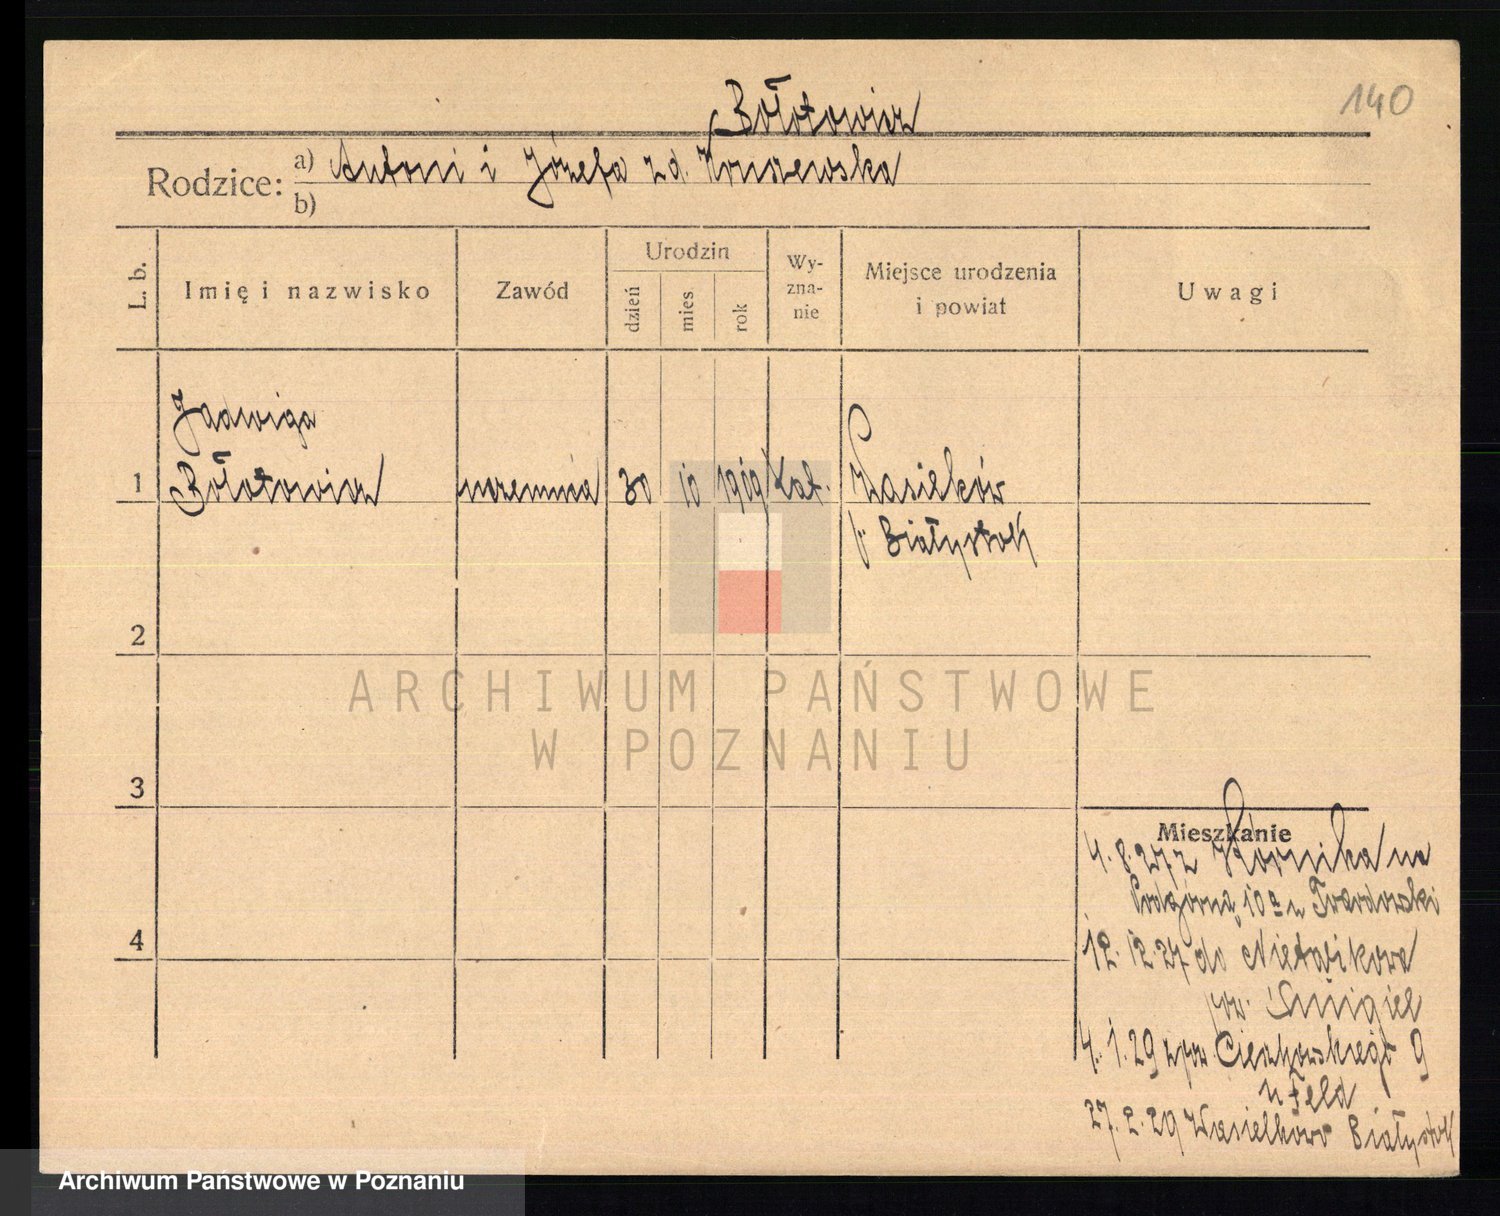 140
Bołotowicz
Rodzice: a) Antoni i Józefa zd. Kruszewska
b)
L. b.
Imię i nazwisko
Zawód
Urodzin
dzień
mies
rok
Wy-
zna-
nie
Miejsce urodzenia
i powiat
Uwagi
Jadwiga
1 Bołotowicz uczennica 30 10 1909 Kat. Wasilków
p. Białystok
2
ARCHIWUM PAŃSTWOWE
W POZNANIU
3
Mieszkanie
4.8.27 z Kórnika na
Podgórną 10a u Twardowski
4
12.12.27 do Nietążkowa
pow. Śmigiel
4.1.29 zpow. Cieszkowskiego 9
u Feld
27.2.29 Wasilków Białystok
Archiwum Państwowe w Poznaniu